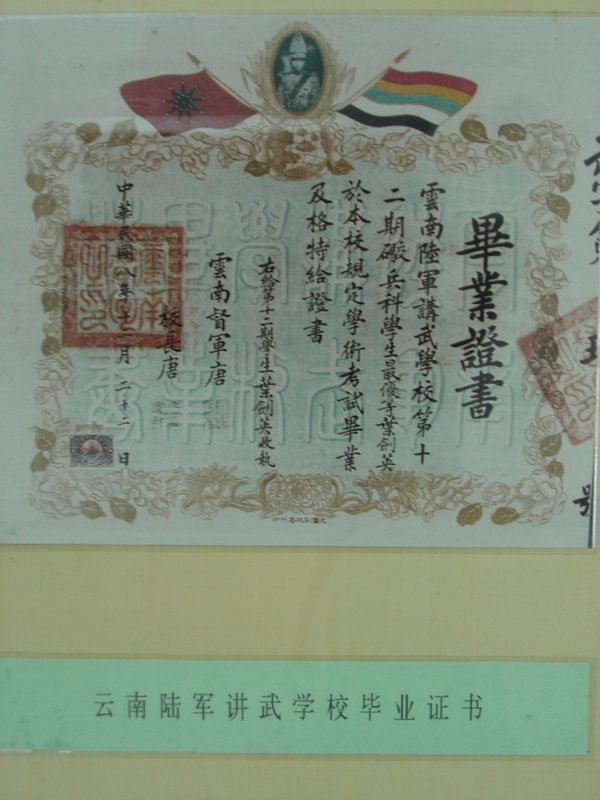 畢業證書
雲南陸軍講武學校第十
二期礮兵科學生最優等葉劍英
於本校規定學術考試畢業
及格特給證書
右給第十二期學生葉劍英收執
雲南督軍唐
校長唐
中華民國八年十二月二十二日
號
云南陆军讲武学校毕业证书